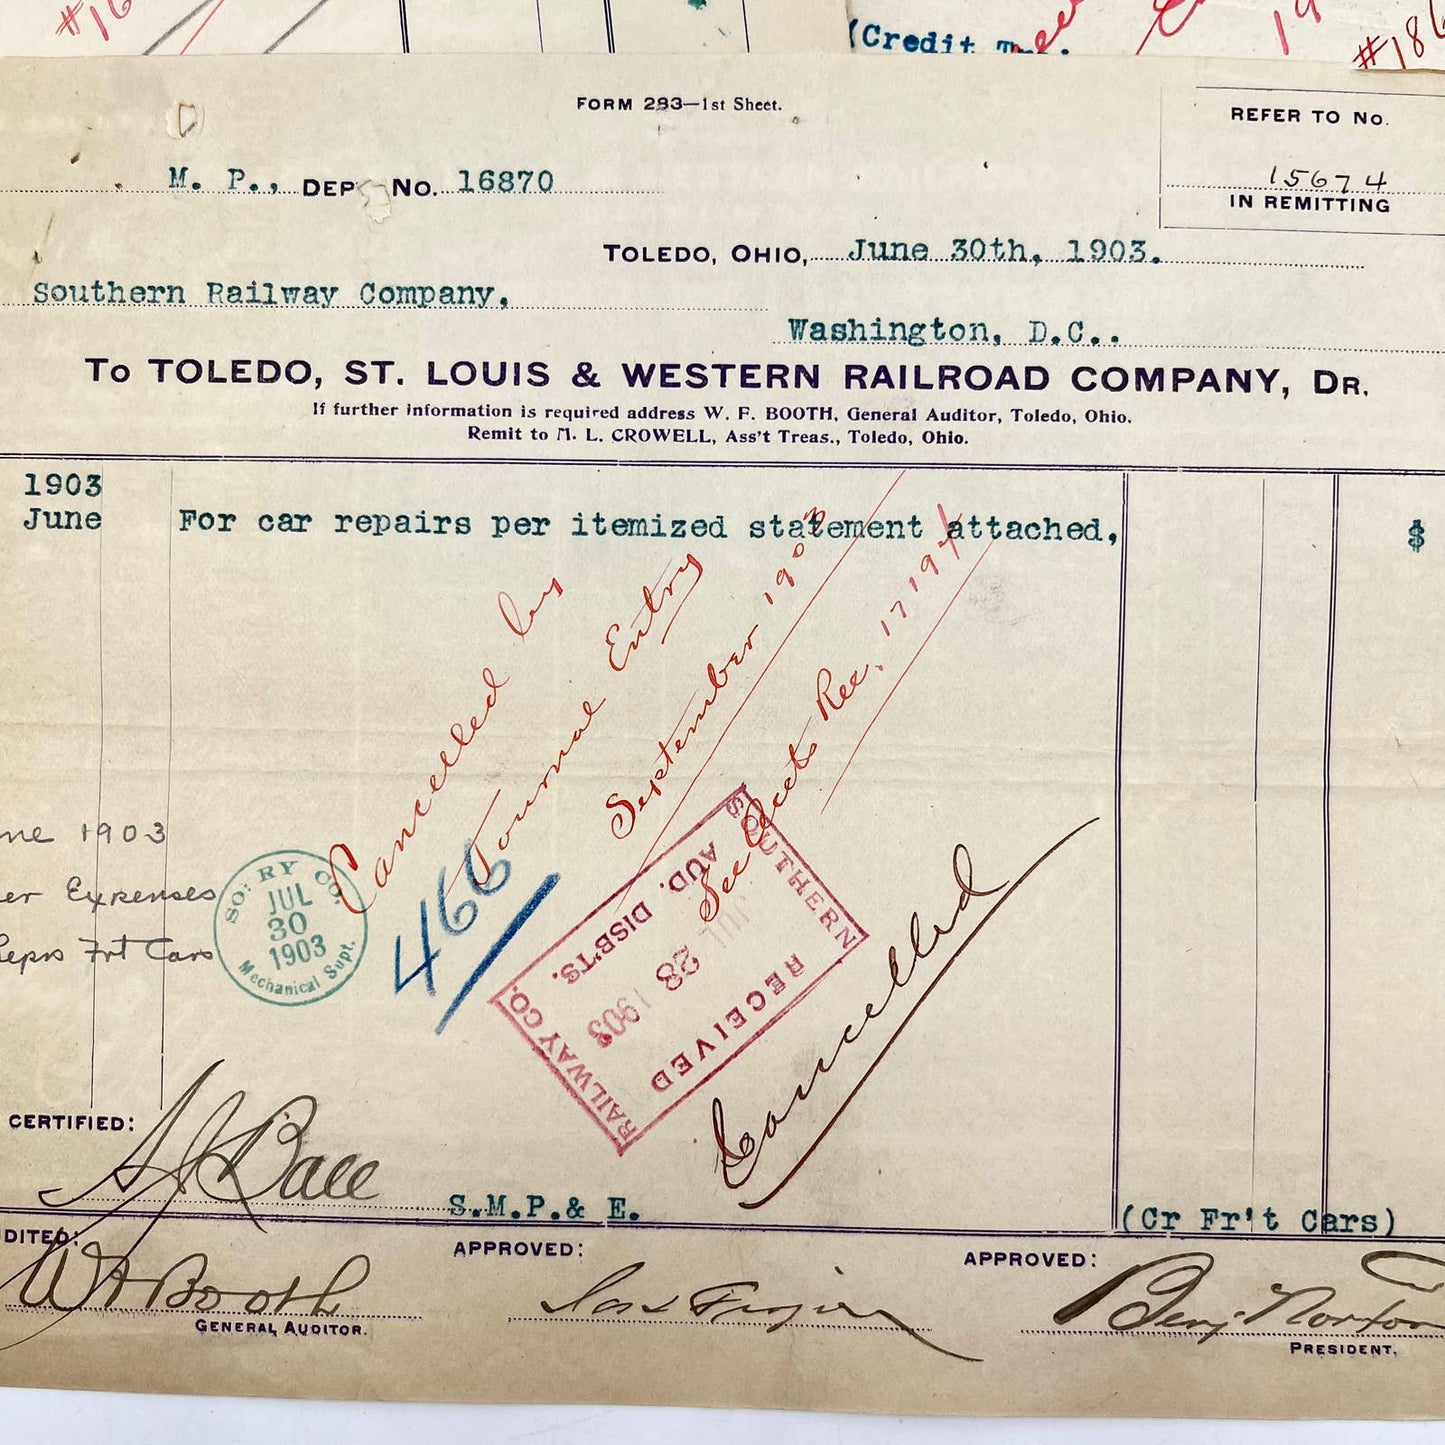 #16
(Credit
#186
FORM 283—1st Sheet.
REFER TO No.
15674
IN REMITTING
M. P., DEP No. 16870
TOLEDO, OHIO, June 30th, 1903.
Southern Railway Company,
Washington, D.C..
To TOLEDO, ST. LOUIS & WESTERN RAILROAD COMPANY, DR.
If further information is required address W. F. BOOTH, General Auditor, Toledo, Ohio.
Remit to M. L. CROWELL, Ass't Treas., Toledo, Ohio.
1903
June For car repairs per itemized statement attached, $
Cancelled by
Journal Entry
September 1903
See Rec. 17194
ne 1903
er Expenses
Reprs Frt Cars
SO: RY CO.
JUL
30
1903
Mechanical Supt.
466
SOUTHERN
RAILWAY CO.
RECEIVED
JUL 28 1903
AUD. DISB'TS.
Cancelled
CERTIFIED:
S.M.P.& E.
(Cr Fr't Cars)
DITED:
W F Booth
GENERAL AUDITOR.
APPROVED:
APPROVED:
Benj. Norton
PRESIDENT.